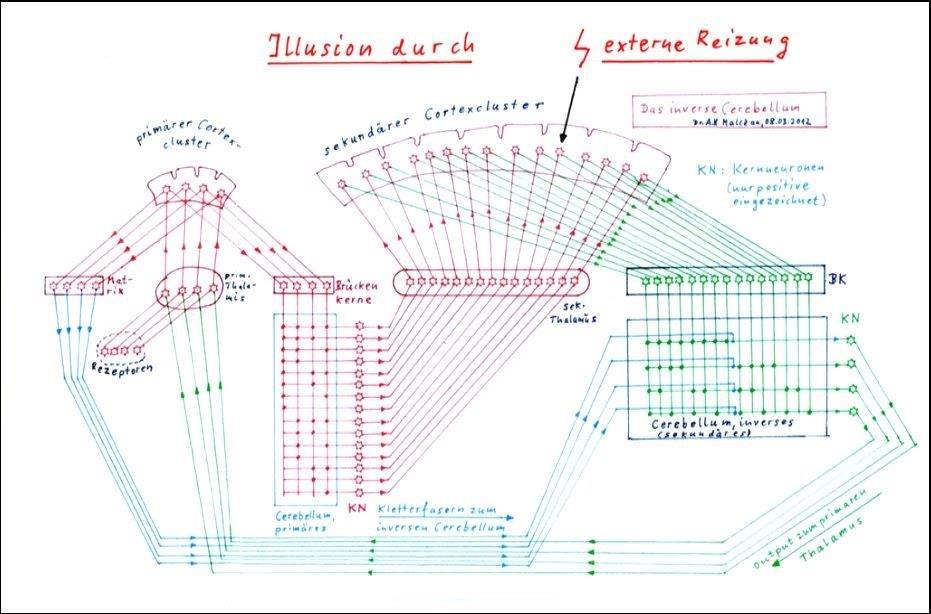 Illusion durch
externe Reizung
Das inverse Cerebellum
Dr. A.H Malczan, 08.03.2012
primärer Cortex-
cluster
sekundärer Cortexcluster
KN: Kernneuronen
(nur positive
eingezeichnet)
Mat-
rix
prim.
Thala-
mus
Brücken
kerne
sek.
Thalamus
BK
KN
Rezeptoren
Cerebellum, inverses
(sekundäres)
KN
Cerebellum,
primäres
Kletterfasern zum
inversen Cerebellum
Output zum primären
Thalamus